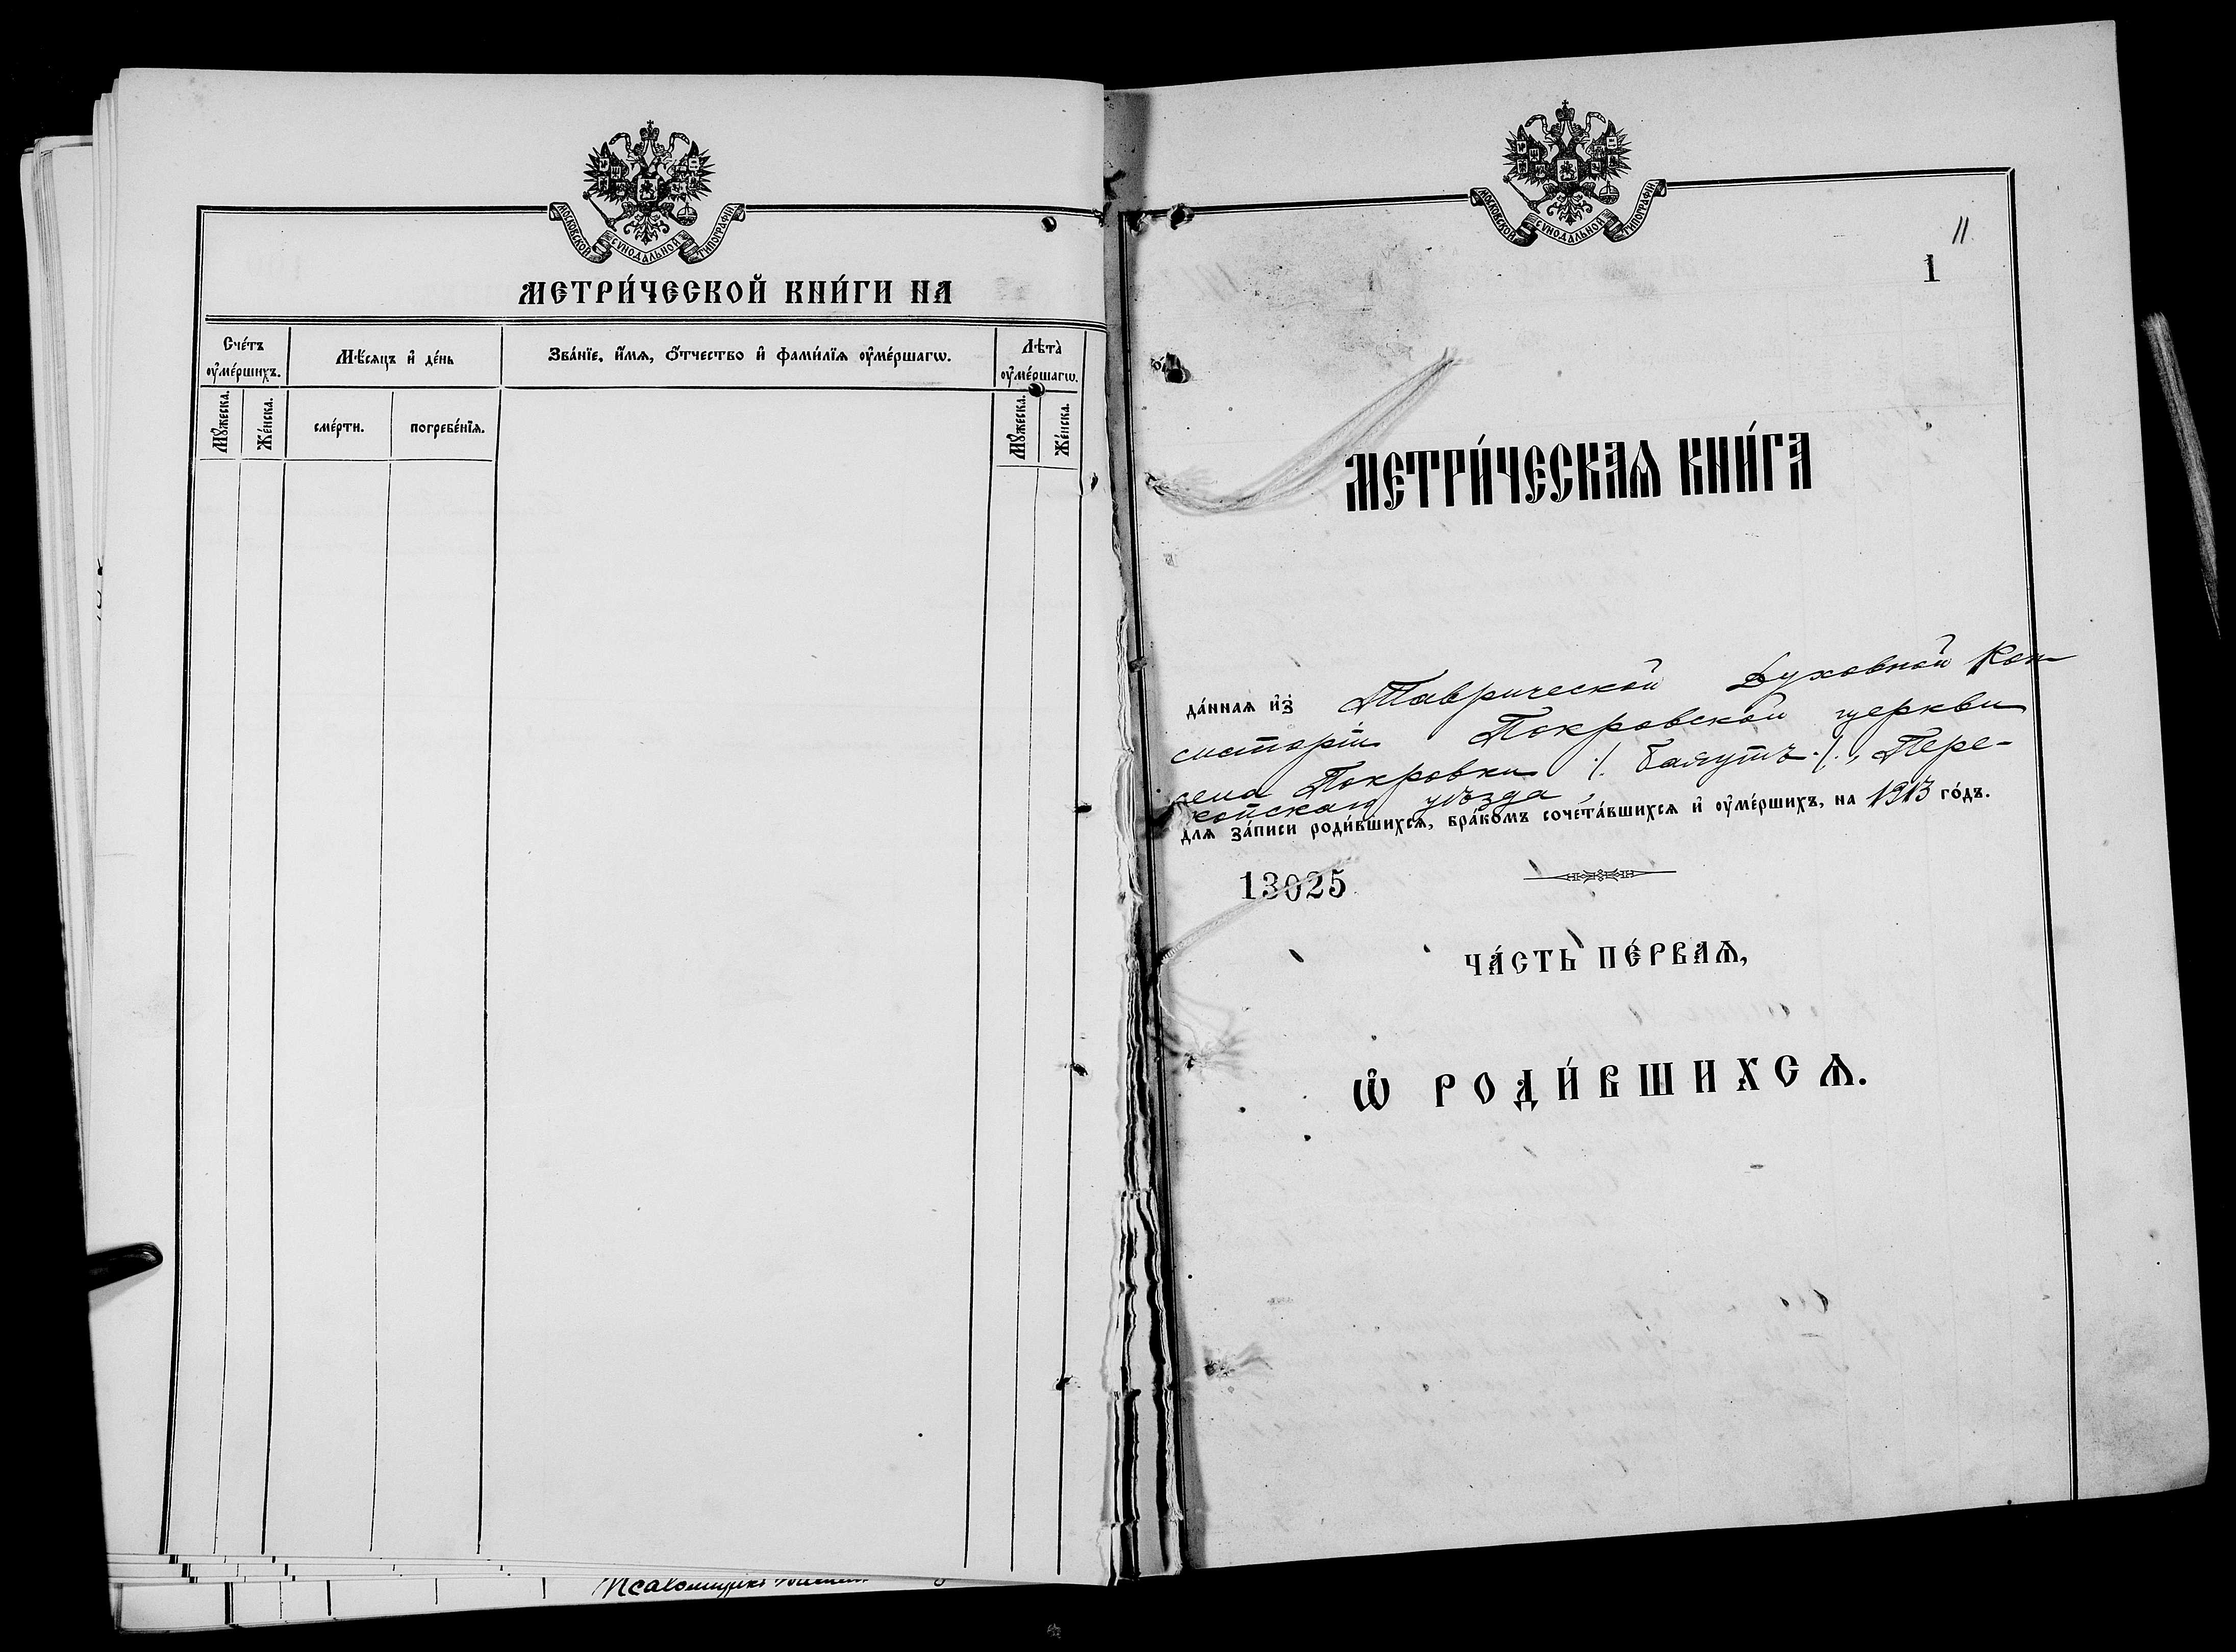 МОСКОВСКОЙ СѴНОДАЛЬНОЙ ТИПОГРАФІИ
МЕТРИ́ЧЕСКОЙ КНИ́ГИ НА
Сче́тъ ᲂу҆ме́ршихъ.
Мѣ́сяцъ и҆ де́нь
Зва́нїе, и҆́мѧ, ѻ҆́тчество и҆ фами́лїѧ ᲂу҆ме́ршагѡ.
Лѣта̀ ᲂу҆ме́ршагѡ.
Мꙋ́жеска.
Же́нска.
сме́рти.
погребе́нїѧ.
Мꙋ́жеска.
Же́нска.
Псаломщикъ
МОСКОВСКОЙ СѴНОДАЛЬНОЙ ТИПОГРАФІИ
11
1
МЕТРИ́ЧЕСКАѦ КНИ́ГА
да́ннаѧ и҆з̾ Таврической Духовной Кон
систоріи Покровской церкви
села Покровки ·/. Баягутъ ·/., Пере-
копскаго уѣзда,
длѧ за́писи роди́вшихсѧ, бра́комъ сочета́вшихсѧ и҆ ᲂу҆ме́ршихъ, на 1913 го́дъ.
13025
ЧА́СТЬ ПЕ́РВАѦ,
Ѡ҆ РОДИ́ВШИХСѦ.